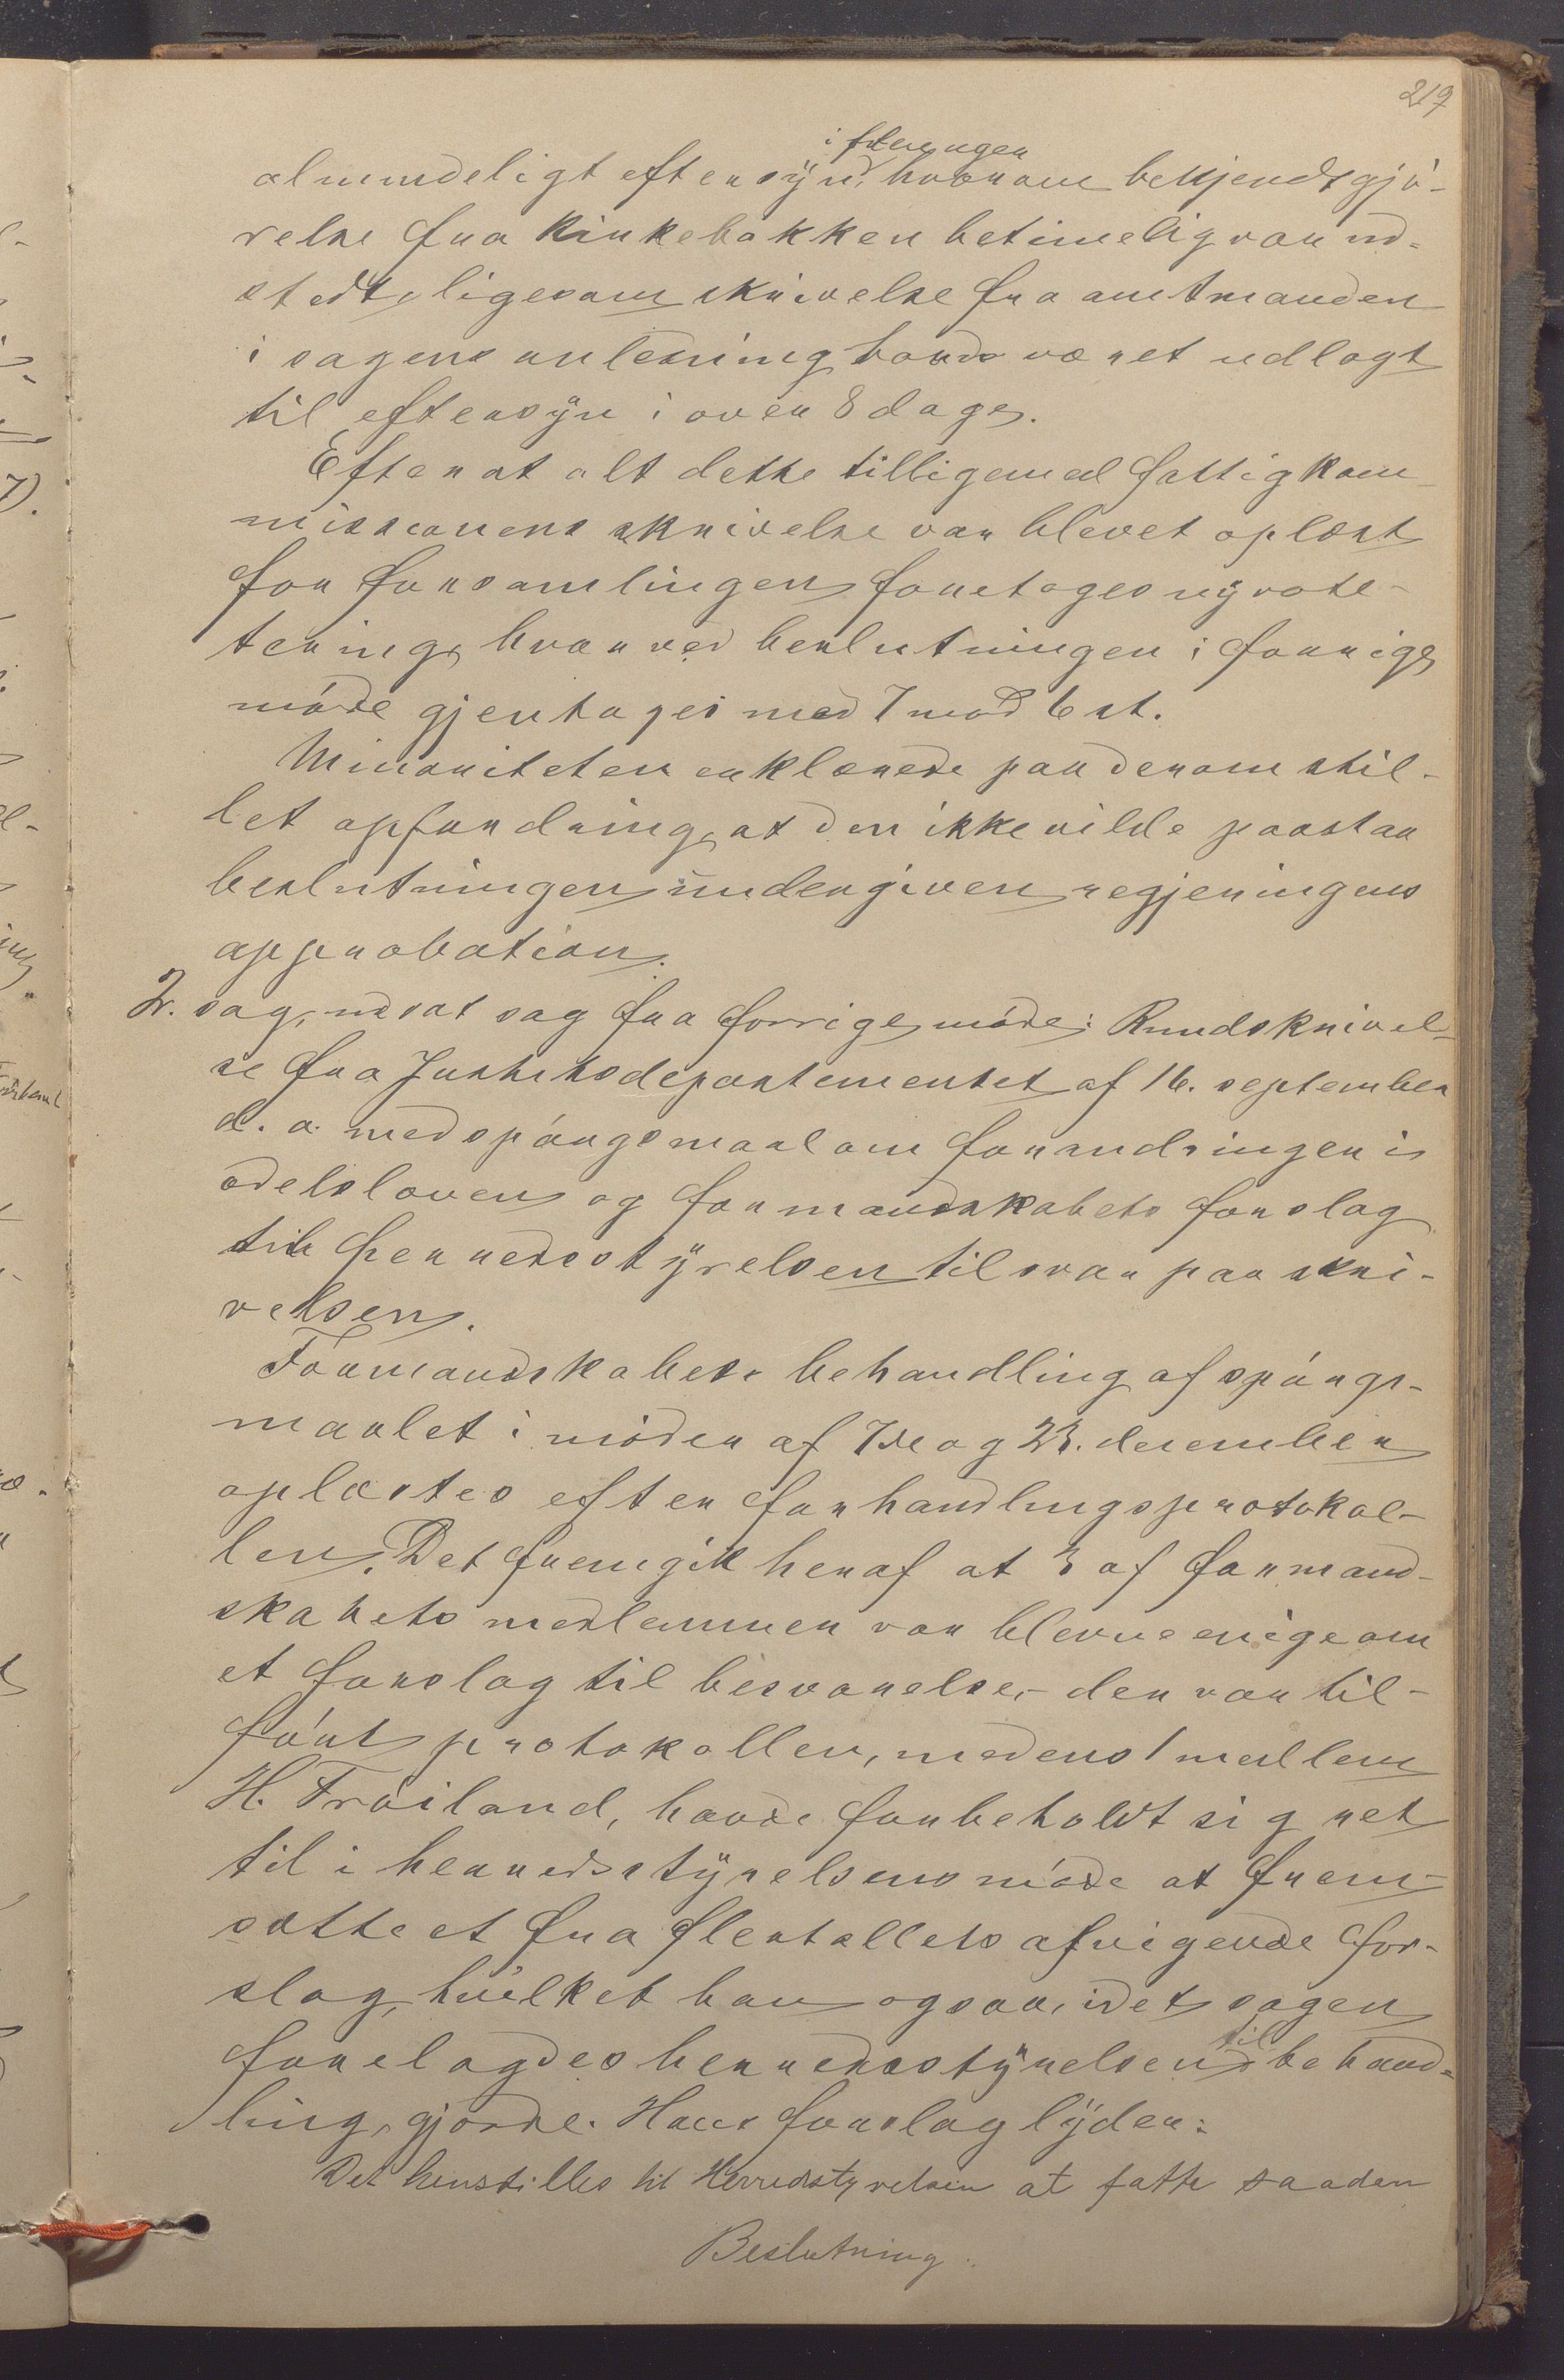 219
i flere uger
almindeligt eftersyn, hvorom bekjendtgjø-
relse fra kirkebakken betimelig var ud-
stedt, ligesom skrivelse fra amtmanden
i sagens anledning havde været udlagt
til eftersyn i over 8 dage.
Efter at alt dette tilligemed fattigkom-
missionens skrivelse var blevet oplæst
for forsamlingen foretages ny vote-
tering, hvorved beslutningen i forrige
møde gjentages med 7 mod 6 st.
Minoriteten erklærede paa derom stil-
let opfordring, at den ikke vilde paastaa
beslutningen undergiven regjeringens
approbation.
2. sag, udsat sag fra forrige møde: Rundskrivel-
se fra Justitsdepartementet af 16. september
d. a. med spørgsmaal om forandringer i
odelsloven og formandskabets forslag
til herredsstyrelsen til svar paa skri-
velsen.
Formandskabets behandling af spørgs-
maalet i møder af 7de og 23. december
oplæstes efter forhandlingsprotokol-
len. Det fremgik heraf at 3 af formand-
skabets medlemmer var blevne enige om
et forslag til besvarelse, der var til-
ført protokollen, medens 1 medlem
H. Trøiland, havde forbeholdt sig ret
til i herredsstyrelsens møde at frem-
sætte et fra flertallets afvigende for-
slag, hvilket han ogsaa, idet sagen
til
forelagdes herredsstyrelsen behand-
ling, gjorde. Hans forslag lyder:
Det henstilles til Herredstyrelsen at fatte saadan
Beslutning.